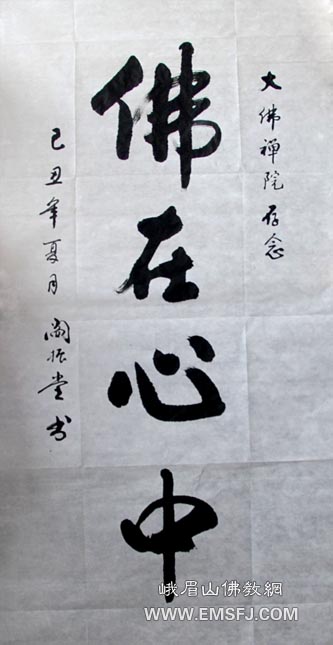 大佛禅院存念
佛在心中
己丑年夏月 阎振堂书
峨眉山佛教網
WWW.EMSFJ.COM